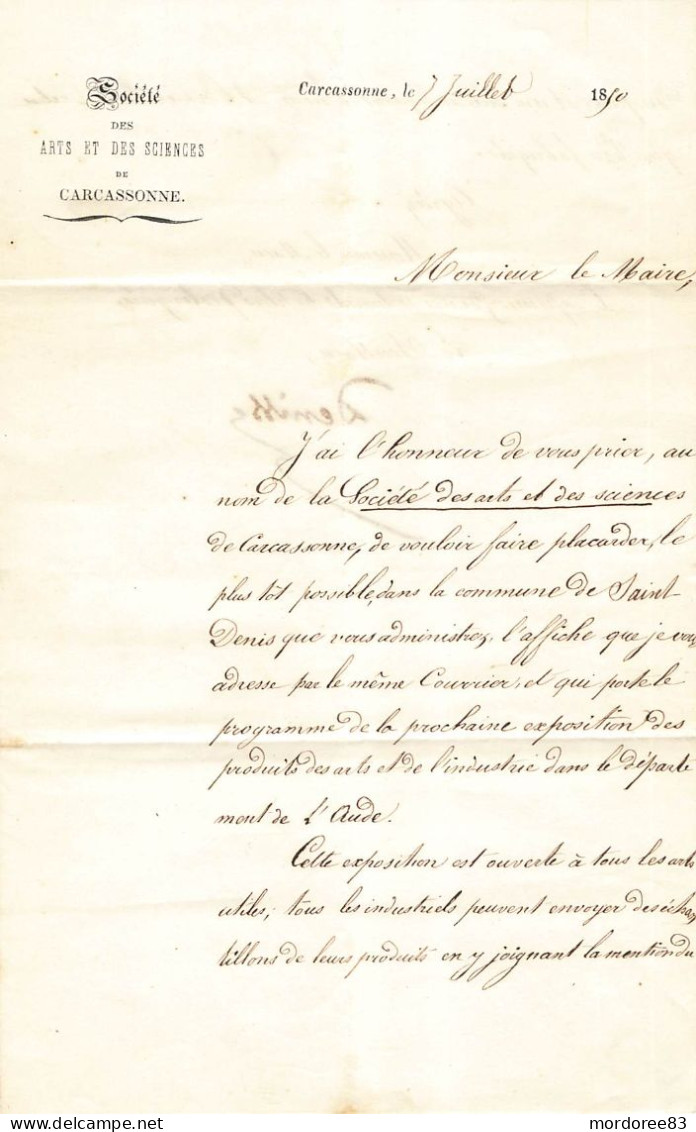 Société
DES
ARTS ET DES SCIENCES
DE
CARCASSONNE.
Carcassonne, le 7 Juillet 1850
Monsieur le Maire,
J'ai l'honneur de vous prier, au
nom de la Société des arts et des sciences
de Carcassonne, de vouloir faire placarder, le
plus tôt possible, dans la commune de Saint
Denis que vous administrez, l'affiche que je vous
adresse par le même Courrier, et qui porte le
programme de la prochaine exposition des
produits des arts et de l'industrie dans le départe
ment de L'Aude.
Cette exposition est ouverte à tous les arts
utiles; tous les industriels peuvent envoyer des échan
tillons de leurs produits en y joignant la mention du
delcampe.net
mordoree83